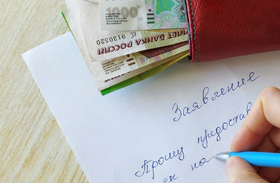 1000
БИЛЕТ БАНКА РОССИИ
Заявление
Прошу предостав
на